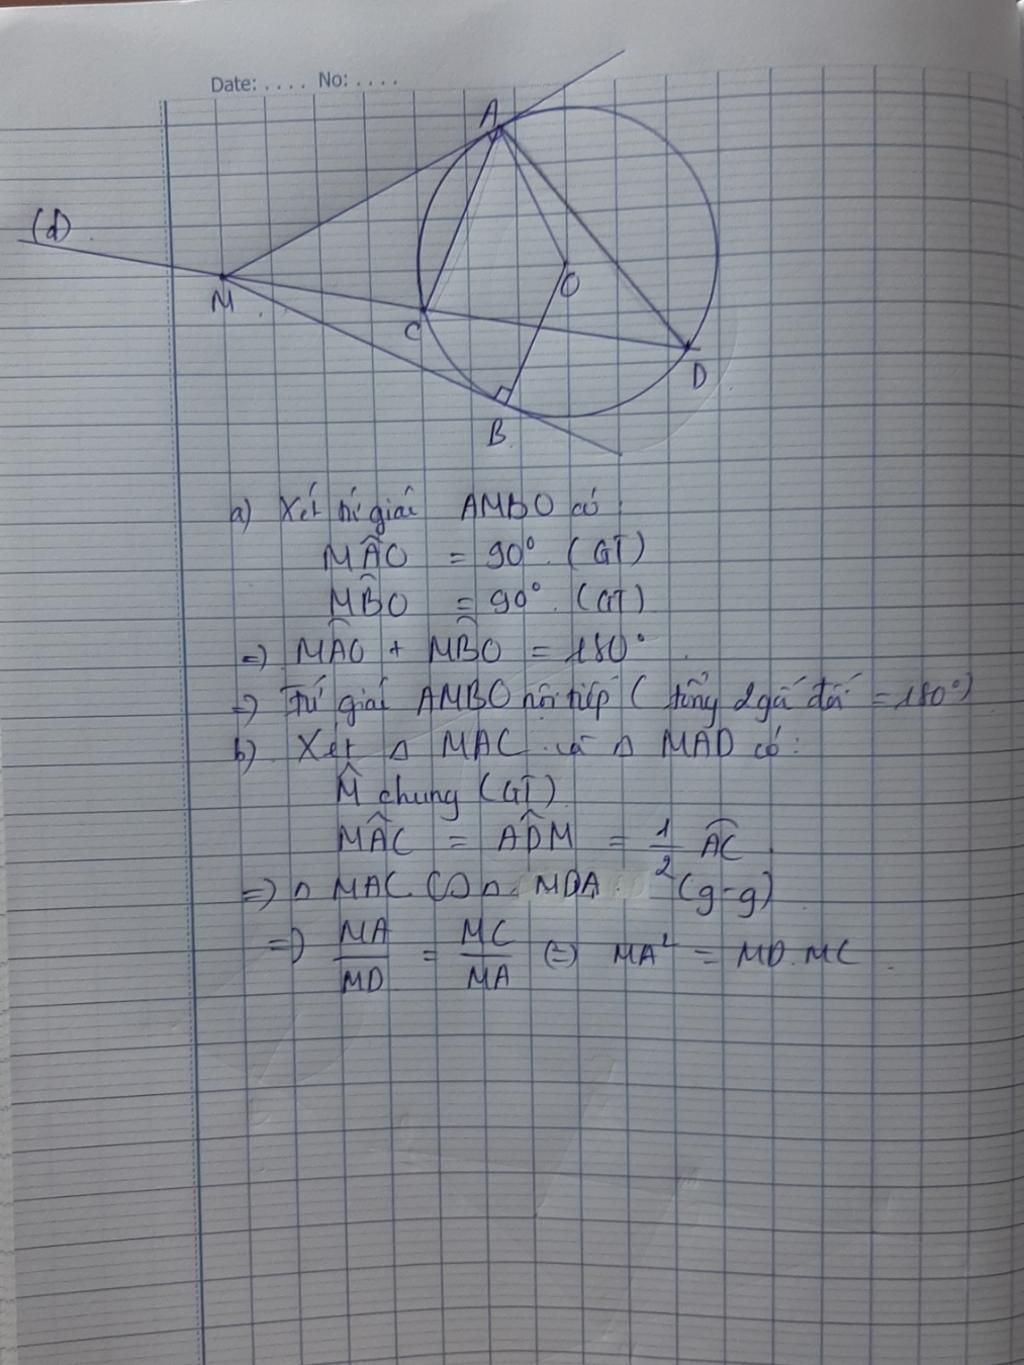 Date: .... No: ....
A
(d)
M
O
C
D
B
a) Xét tứ giác AMBO có
MÂO = 90° (GT)
MB̂O = 90° (GT)
=) MÂO + MB̂O = 180°
=) Tứ giác AMBO nội tiếp ( tổng 2 góc đối = 180°)
b) Xét Δ MAC và Δ MAD có:
M̂ chung (GT)
MÂC = AD̂M = 1/2 A͡C
=) Δ MAC ∽ Δ MDA (g-g)
=) MA/MD = MC/MA (=) MA² = MD.MC